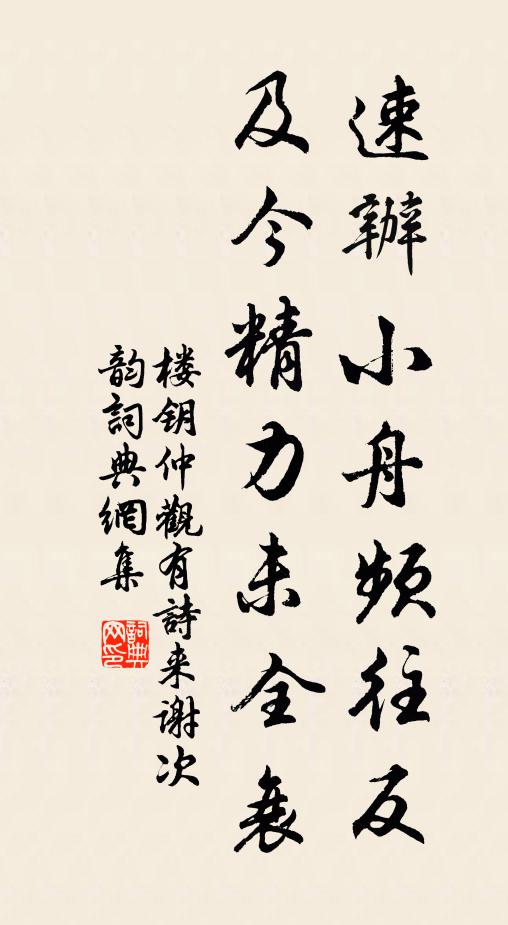 速辦小舟頻往反
及今精力未全衰
楼钥仲觀有詩来谢次
韵詞典網集
詞典
网印